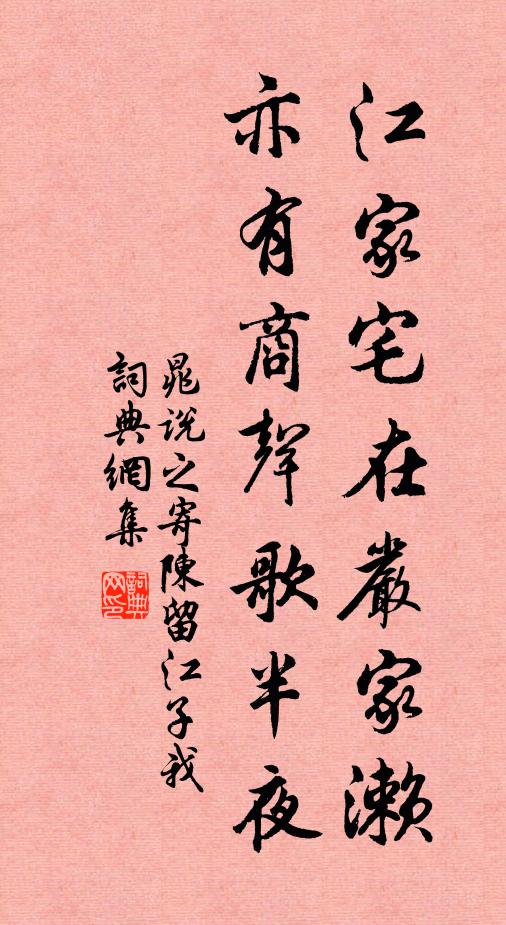 江家宅在嚴家瀨
亦有商聲歌半夜
晁說之寄陳留江子我
詞典網集
詞典网印